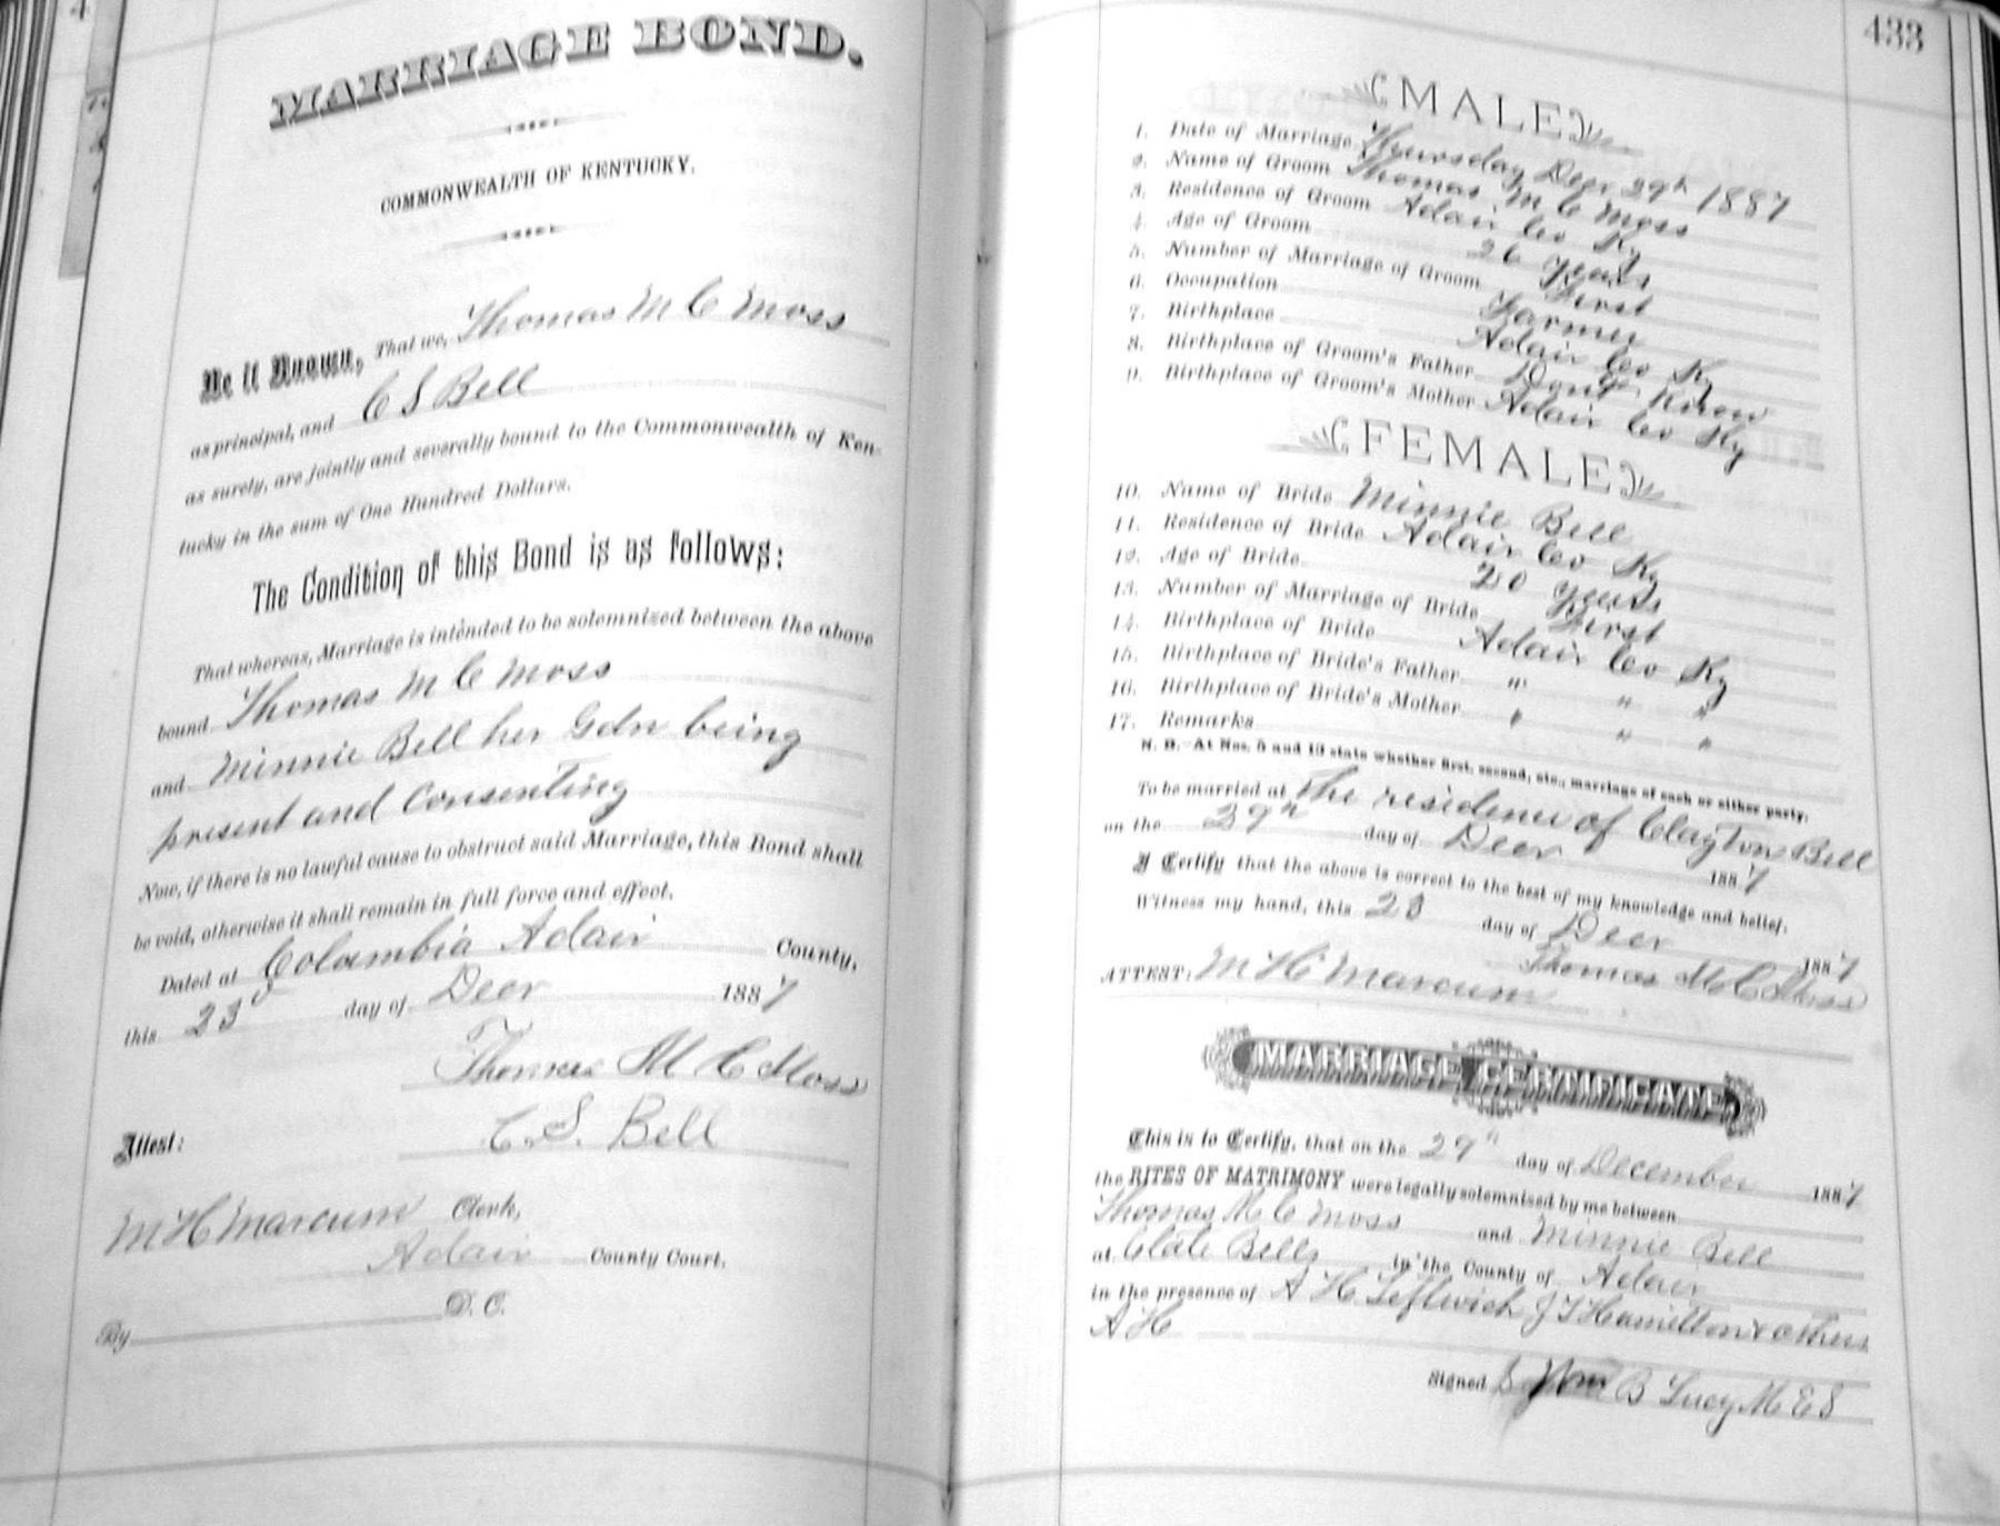 4
MARRIAGE BOND.
COMMONWEALTH OF KENTUCKY.
Be it Known, That we, Thomas M C Moss
as principal, and C S Bell
as surely, are jointly and severally bound to the Commonwealth of Ken-
tucky in the sum of One Hundred Dollars.
The Condition of this Bond is as follows:
That whereas, Marriage is intended to be solemnized between the above
bound Thomas M C Moss
and Minnie Bell her Gdn being
present and Consenting
Now, if there is no lawful cause to obstruct said Marriage, this Bond shall
be void, otherwise it shall remain in full force and effect.
Dated at Columbia Adair County,
this 23d day of Decr 1887
Thomas M C Moss
C. S. Bell
Attest:
M H Marcum Clerk,
Adair County Court.
By D. C.
433
MALE
1. Date of Marriage Thursday Decr 29th 1887
2. Name of Groom Thomas M C Moss
3. Residence of Groom Adair Co Ky
4. Age of Groom 26 years
5. Number of Marriage of Groom First
6. Occupation Farmer
7. Birthplace Adair Co Ky
8. Birthplace of Groom's Father Dont Know
9. Birthplace of Groom's Mother Adair Co Ky
FEMALE
10. Name of Bride Minnie Bell
11. Residence of Bride Adair Co Ky
12. Age of Bride 20 years
13. Number of Marriage of Bride First
14. Birthplace of Bride Adair Co Ky
15. Birthplace of Bride's Father " " "
16. Birthplace of Bride's Mother " " "
17. Remarks
N. B.—At Nos. 5 and 13 state whether first, second, etc., marriage of each or either party.
To be married at The residence of Clayton Bell
on the 29th day of Decr 1887
I Certify that the above is correct to the best of my knowledge and belief.
Witness my hand, this 23 day of Decr 1887
Thomas M C Moss
ATTEST: M H Marcum
MARRIAGE CERTIFICATE
This is to Certify, that on the 29th day of December 1887
the RITES OF MATRIMONY were legally solemnized by me between
Thomas M C Moss and Minnie Bell
at Clate Bells in the County of Adair
in the presence of A H Leftwich J T Hamilton & others
A H
Signed B Lucy M E S